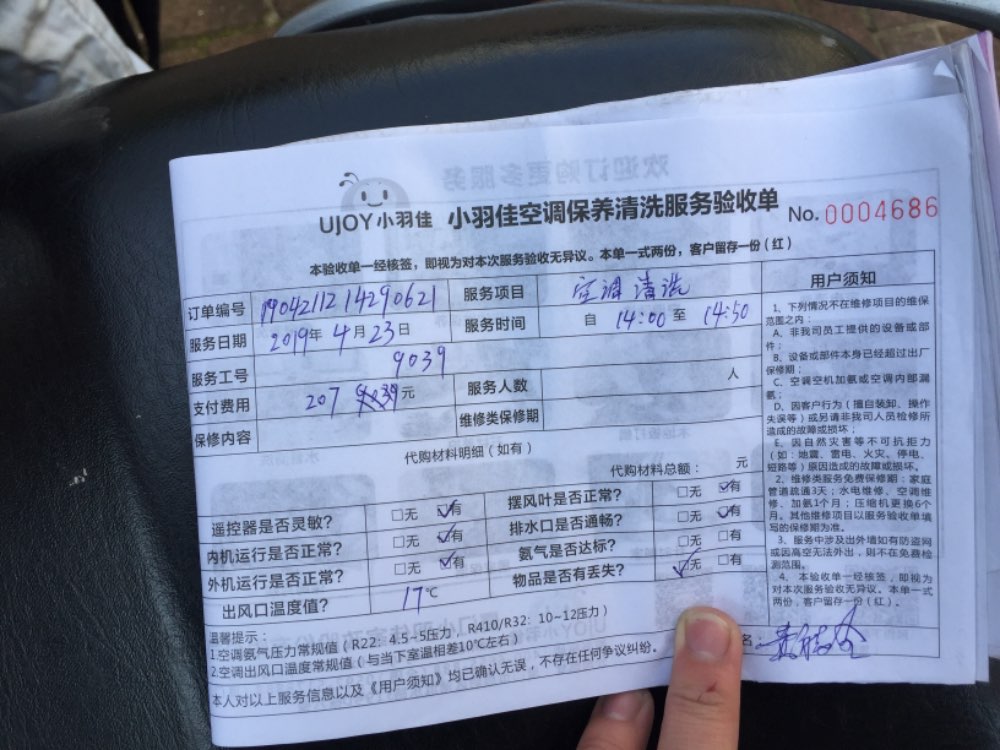 UJOY小羽佳 小羽佳空调保养清洗服务验收单 No. 0004686
本验收单一经核签，即视为对本次服务验收无异议。本单一式两份，客户留存一份（红）
订单编号 19042112 14290621 服务项目 空调清洗
服务日期 2019年4月23日 服务时间 自 14:00 至 14:50
服务工号 9039
支付费用 207 元 服务人数 人
保修内容 维修类保修期
代购材料明细（如有）
代购材料总额： 元
遥控器是否灵敏？ □无 ☑有 摆风叶是否正常？ □无 ☑有
内机运行是否正常？ □无 ☑有 排水口是否通畅？ □无 ☑有
外机运行是否正常？ □无 ☑有 氨气是否达标？ □无 □有
出风口温度值？ 17℃ 物品是否有丢失？ ☑无 □有
温馨提示：
1.空调氨气压力常规值（R22：4.5~5压力，R410/R32：10~12压力）
2.空调出风口温度常规值（与当下室温相差10℃左右）
本人对以上服务信息以及《用户须知》均已确认无误，不存在任何争议纠纷。
名：
用户须知
1、下列情况不在维修项目的维保
范围之内：
A、非我司员工提供的设备或部
件；
B、设备或部件本身已经超过出厂
保修期；
C、空调空机加氨或空调内部漏
氨；
D、因客户行为（擅自装卸、操作
失误等）或另请非我司人员检修所
造成的故障或损坏；
E、因自然灾害等不可抗拒力
（如：地震、雷电、火灾、停电、
短路等）原因造成的故障或损坏。
2、维修类服务免费保修期：家庭
管道疏通3天；水电维修、空调维
修、加氨1个月；压缩机更换6个
月。其他维修项目以服务验收单填
写的保修期为准。
3、服务中涉及出外墙如有防盗网
或因高空无法外出，则不在免费检
测范围。
4、本验收单一经核签，即视为
对本次服务验收无异议。本单一式
两份，客户留存一份（红）。